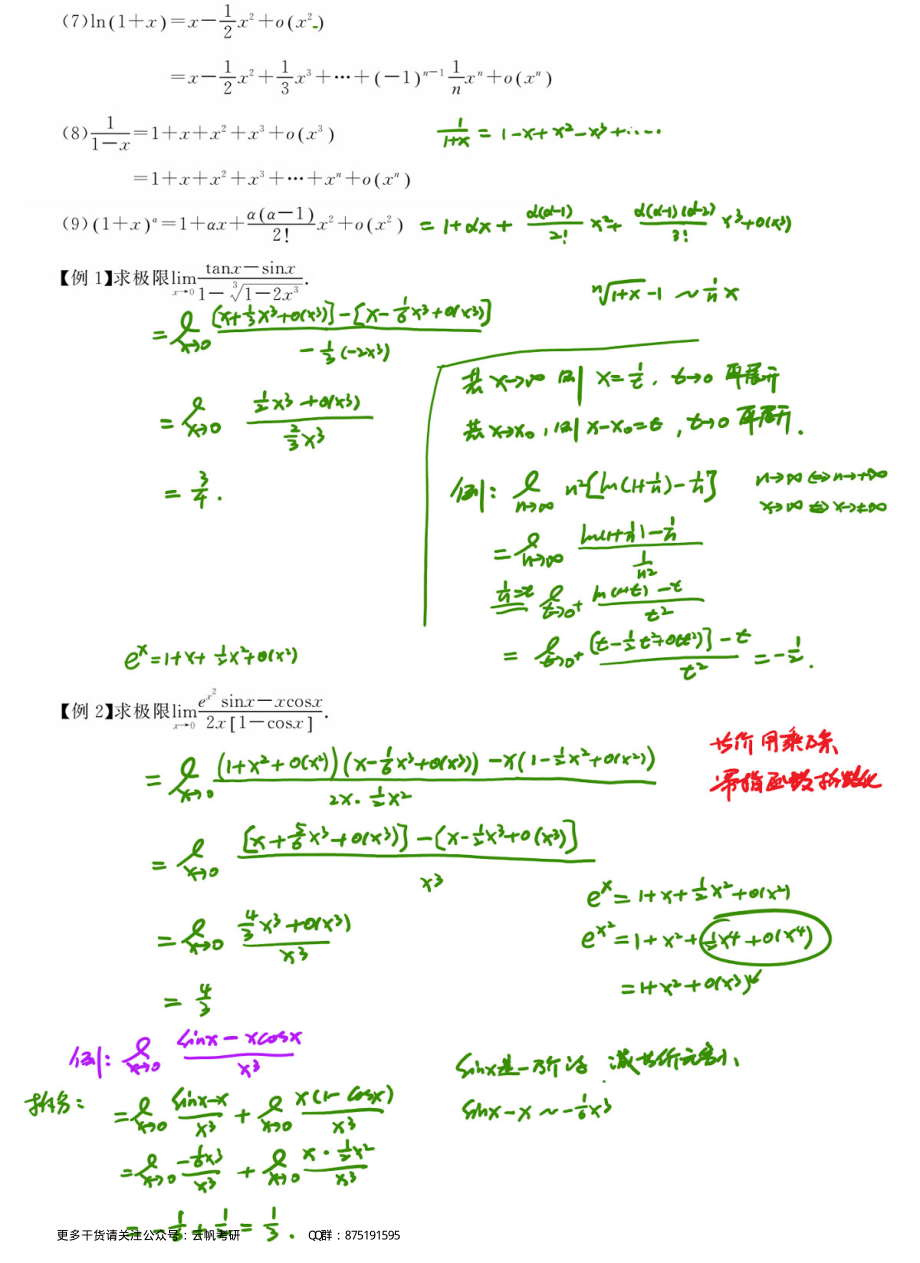 (7) ln(1+x)=x-\frac{1}{2}x²+o(x²)
=x-\frac{1}{2}x²+\frac{1}{3}x³+⋯+(-1)ⁿ⁻¹\frac{1}{n}xⁿ+o(xⁿ)
(8) \frac{1}{1-x}=1+x+x²+x³+o(x³)
\frac{1}{1+x}=1-x+x²-x³+⋯⋯
=1+x+x²+x³+⋯+xⁿ+o(xⁿ)
(9) (1+x)^α=1+αx+\frac{α(α-1)}{2!}x²+o(x²) =1+αx+\frac{α(α-1)}{2!}x²+\frac{α(α-1)(α-2)}{3!}x³+o(x³)
【例 1】求极限\lim_{x→0}\frac{tanx-sinx}{1-\sqrt[3]{1-2x³}}.
\sqrt[n]{1+x}-1~\frac{1}{n}x
=\lim_{x→0}\frac{[x+\frac{1}{3}x³+o(x³)]-[x-\frac{1}{6}x³+o(x³)]}{-\frac{1}{3}(-2x³)}
=\lim_{x→0}\frac{\frac{1}{2}x³+o(x³)}{\frac{2}{3}x³}
=\frac{3}{4}.
若x→∞ 则 x=\frac{1}{t}, t→0 再展开
若x→x₀,则 x-x₀=t,t→0 再展开.
例: \lim_{n→∞} n²[ln(1+\frac{1}{n})-\frac{1}{n}]
n→∞⇔n→+∞
x→∞⇔x→±∞
=\lim_{n→∞}\frac{ln(1+\frac{1}{n})-\frac{1}{n}}{\frac{1}{n²}}
\frac{1}{n}=t \lim_{t→0⁺}\frac{ln(1+t)-t}{t²}
=\lim_{t→0⁺}\frac{[t-\frac{1}{2}t²+o(t²)]-t}{t²}=-\frac{1}{2}.
eˣ=1+x+\frac{1}{2}x²+o(x²)
【例 2】求极限\lim_{x→0}\frac{e^{x²}sinx-xcosx}{2x[1-cosx]}.
=\lim_{x→0}\frac{(1+x²+o(x²))(x-\frac{1}{6}x³+o(x³))-x(1-\frac{1}{2}x²+o(x²))}{2x·\frac{1}{2}x²}
幂指函数指数化
=\lim_{x→0}\frac{[x+\frac{5}{6}x³+o(x³)]-[x-\frac{1}{2}x³+o(x³)]}{x³}
=\lim_{x→0}\frac{\frac{4}{3}x³+o(x³)}{x³}
=\frac{4}{3}
eˣ=1+x+\frac{1}{2}x²+o(x²)
e^{x²}=1+x²+\frac{1}{2}x⁴+o(x⁴)
=1+x²+o(x³)
例: \lim_{x→0}\frac{sinx-xcosx}{x³}
=\lim_{x→0}\frac{sinx-x}{x³}+\lim_{x→0}\frac{x(1-cosx)}{x³}
=\lim_{x→0}\frac{-\frac{1}{6}x³}{x³}+\lim_{x→0}\frac{x·\frac{1}{2}x²}{x³}
=-\frac{1}{6}+\frac{1}{2}=\frac{1}{3}.
sinx-x~-\frac{1}{6}x³
更多干货请关注公众号:云帆考研 QQ群:875191595